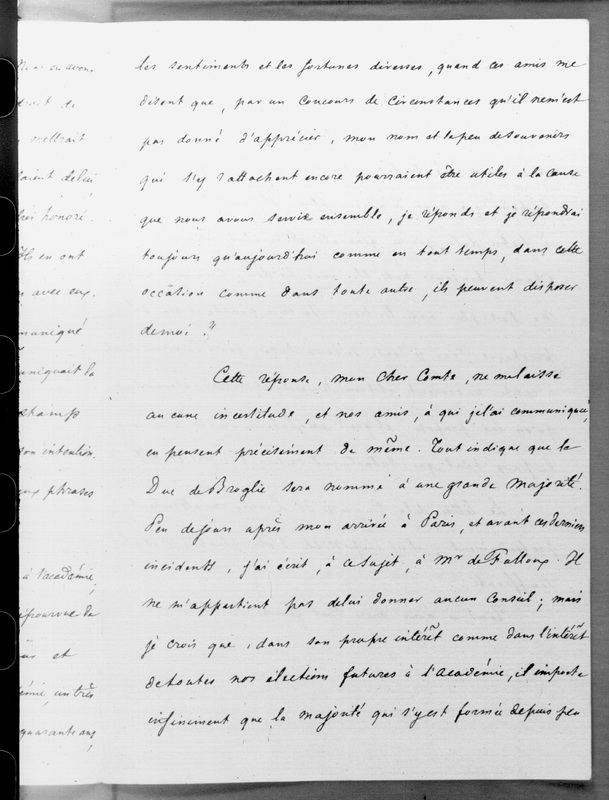 les sentiments et les fortunes diverses, quand ces amis me
disent que, par un concours de circonstances qu'il ne m'est
pas donné d'apprécier, mon nom et le peu de souvenirs
qui s'y rattachent encore pourraient être utiles à la cause
que nous avons servie ensemble, je réponds et je répondrai
toujours qu'aujourd'hui comme en tout temps, dans cette
occasion comme dans toute autre, ils peuvent disposer
de moi."
Cette réponse, mon cher Comte, ne me laisse
aucune incertitude, et nos amis, à qui je l'ai communiquée,
en pensent précisément de même. Tout indique que le
Duc de Broglie sera nommé à une grande majorité.
Peu de jours après mon arrivée à Paris, et avant ces derniers
incidents, j'ai écrit, à ce sujet, à Mr de Falloux. Il
ne m'appartient pas de lui donner aucun conseil ; mais
je crois que, dans son propre intérêt comme dans l'intérêt
de toutes nos élections futures à l'académie, il importe
infiniment que la majorité qui s'y est formée depuis peu
droit de
honoré
Ils en ont
avec eux.
muniqué
uniquait la
champ
son intention.
phrases
à l'académie,
dépourvue de
et
un très
quarante ans,